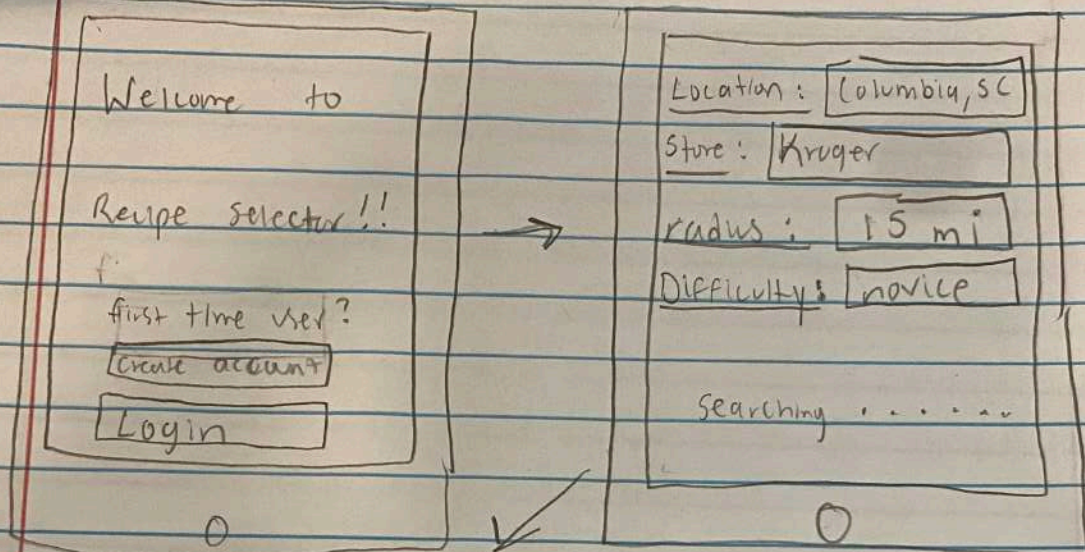 Welcome to
Recipe selector!!
first time user?
Create account
Login
Location: Columbia, SC
Store: Kruger
radus: 15 mi
Difficulty: novice
searching .......